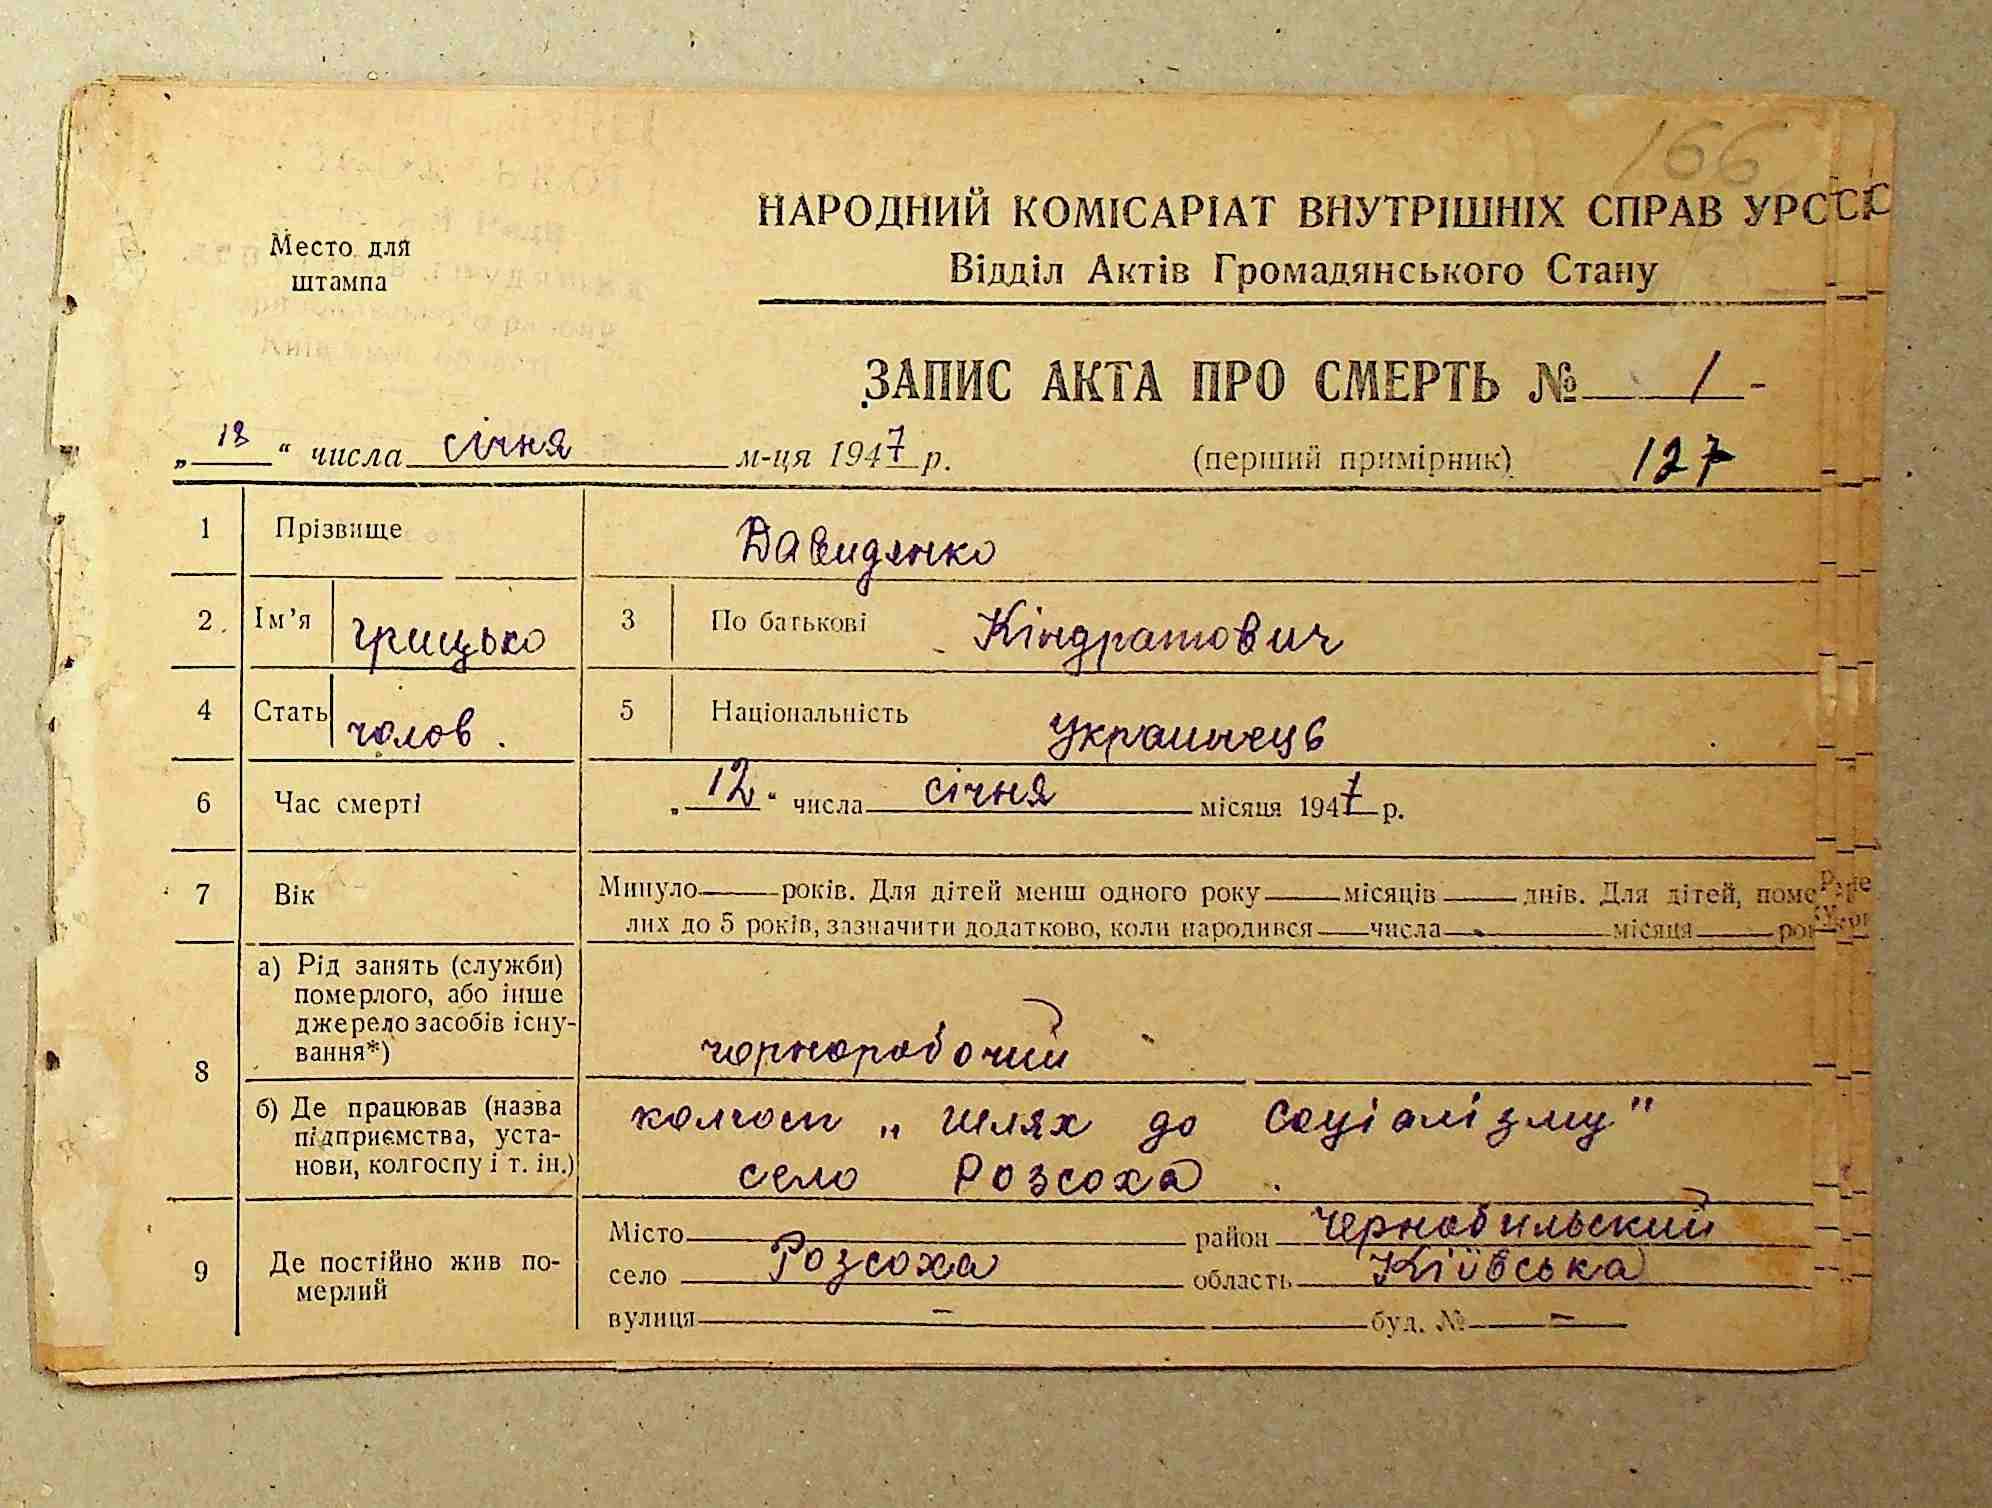 166
НАРОДНИЙ КОМІСАРІАТ ВНУТРІШНІХ СПРАВ УРСР
Відділ Актів Громадянського Стану
Место для
штампа
ЗАПИС АКТА ПРО СМЕРТЬ № 1
„18“ числа січня м-ця 1947 р. (перший примірник) 127
1 Прізвище Давидянко
2 Ім’я Грицько 3 По батькові Кіндратович
4 Стать чолов. 5 Національність Українець
6 Час смерті „12“ числа січня місяця 1947 р.
7 Вік Минуло років. Для дітей менш одного року місяців днів. Для дітей, помер-
лих до 5 років, зазначити додатково, коли народився числа місяця року
8 а) Рід занять (служби)
померлого, або інше
джерело засобів існу-
вання*)
чорноробочий
б) Де працював (назва
підприємства, уста-
нови, колгоспу і т. ін.)
колгосп „Шлях до Соціалізму"
село Розсоха
9 Де постійно жив по-
мерлий
Місто район Чернобильский
село Розсоха область Київська
вулиця – буд. № –